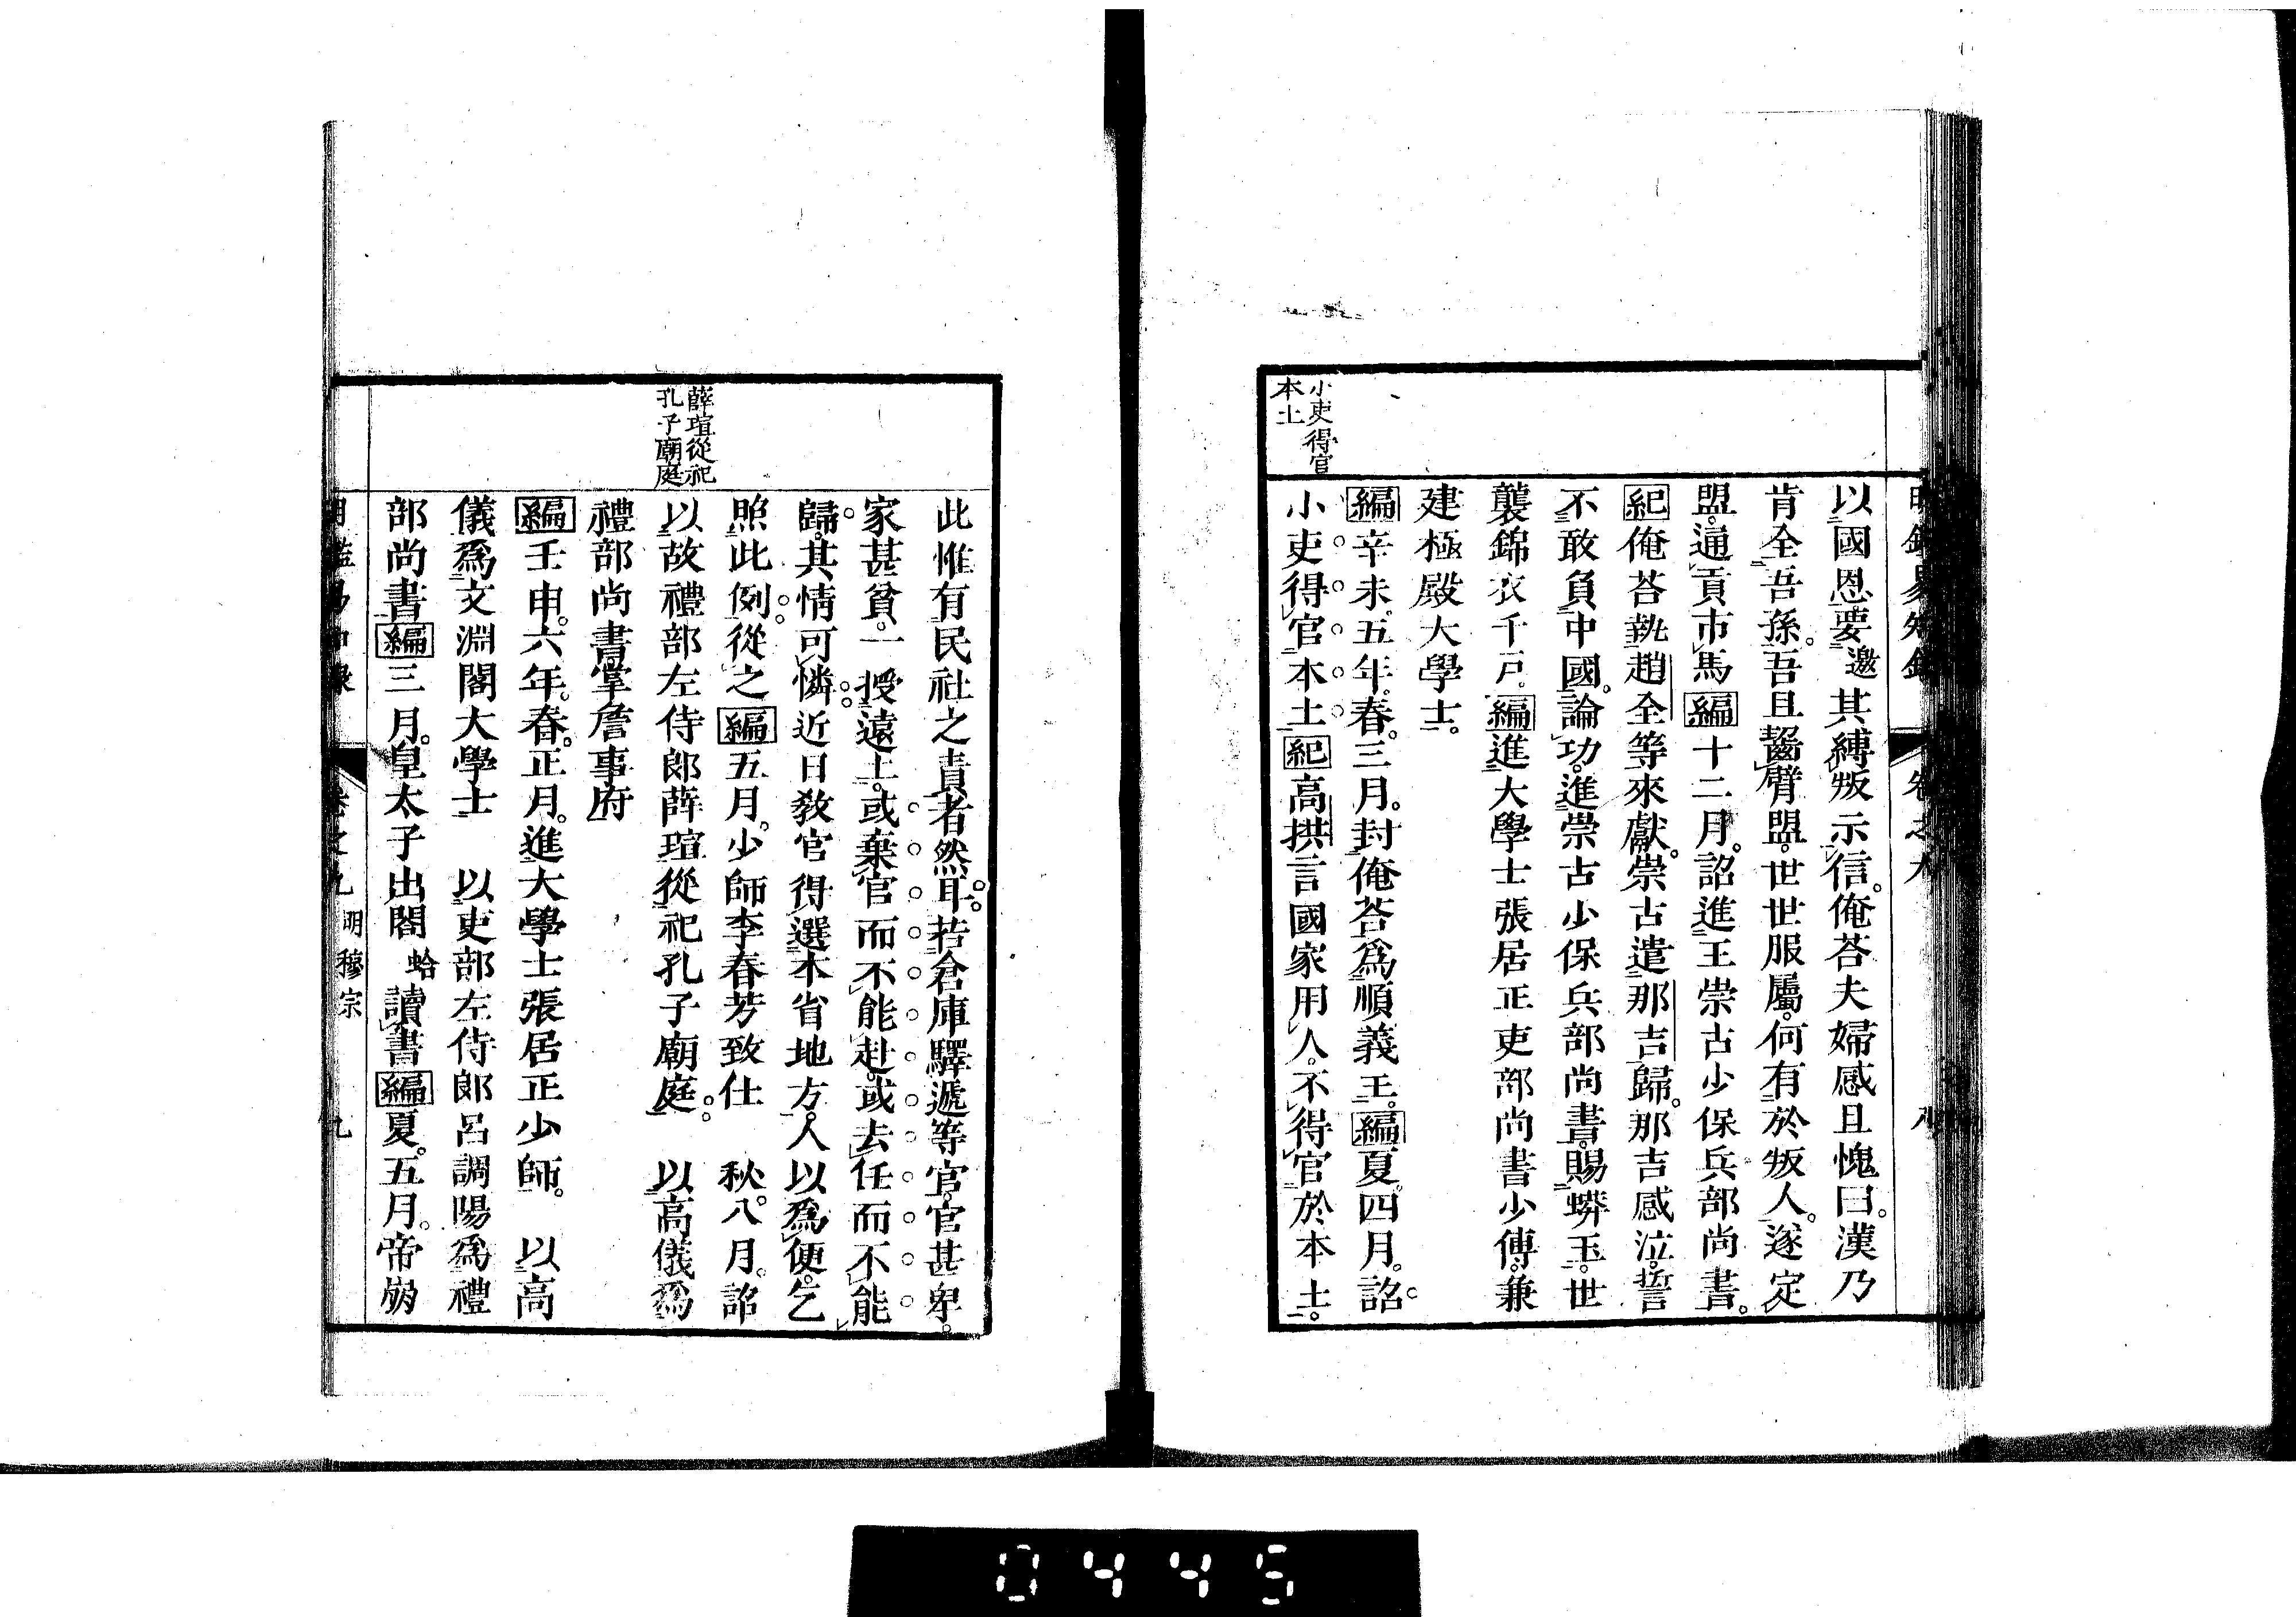 以國恩要邀其縛叛示信。俺荅夫婦感且愧曰。漢乃
肯全吾孫。吾且齧臂盟。世世服屬。何有於叛人。遂定
盟。通貢市馬編十二月。詔進王崇古少保兵部尚書。
紀俺荅執趙全等來獻。崇古遣那吉歸。那吉感泣。誓
不敢負中國。論功。進崇古少保兵部尚書。賜蟒玉。世
襲錦衣千戶。編進大學士張居正吏部尚書少傅。兼
建極殿大學士。
編辛未。五年。春。三月。封俺荅爲順義王。編夏。四月。詔
小吏得官本土紀高拱言國家用人。不得官於本土。
小吏得官
本土
此惟有民社之責者然耳。若倉庫驛遞等官。官甚卑。
家甚貧。一授遠土。或棄官而不能赴。或去任而不能
歸。其情可憐。近日敎官得選本省地方。人以爲便。乞
照此例。從之編五月。少師李春芳致仕 秋。八月。詔
以故禮部左侍郞薛瑄從祀孔子廟庭。 以高儀爲
禮部尚書掌詹事府
編壬申。六年。春。正月。進大學士張居正少師。 以高
儀爲文淵閣大學士 以吏部左侍郞呂調陽爲禮
部尚書編三月。皇太子出閣蛤讀書編夏。五月。帝崩
薛瑄從祀
孔子廟庭
卷之九 明穆宗 九